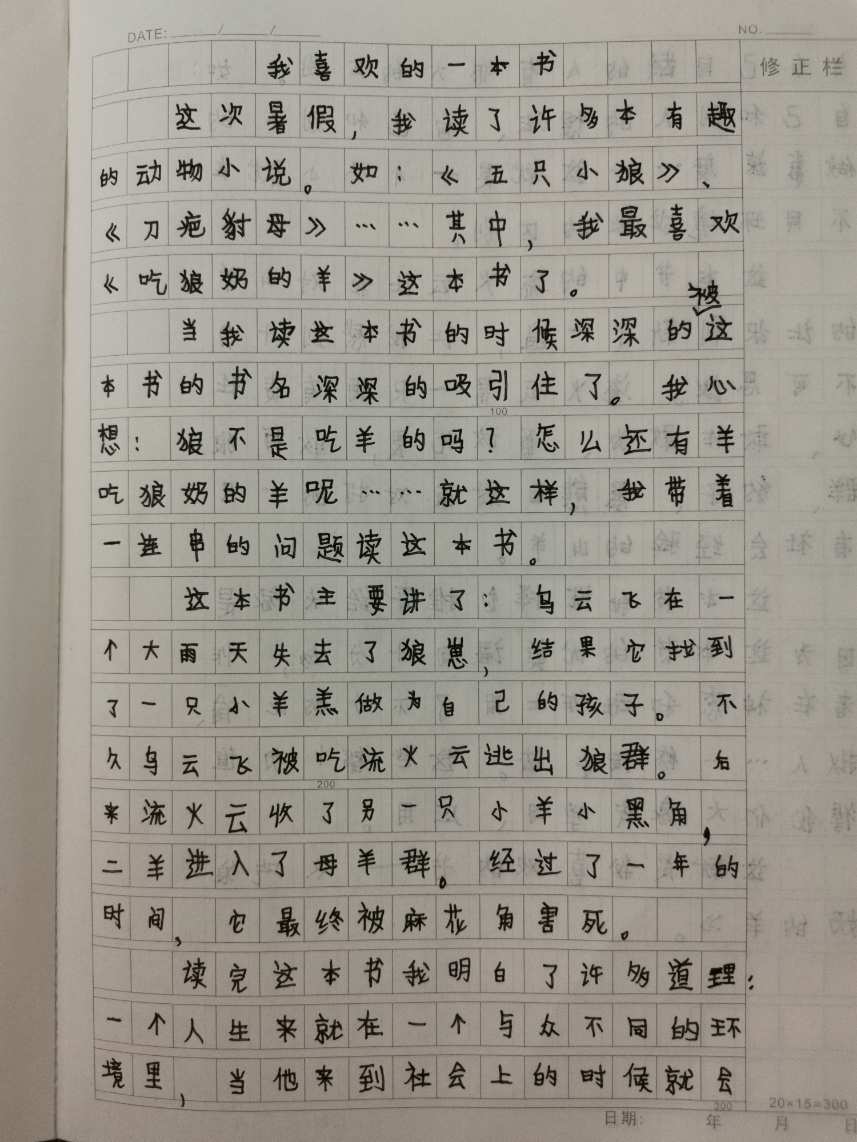 DATE: / /
NO.
我喜欢的一本书
修正栏
这次暑假，我读了许多本有趣
的动物小说。如：《五只小狼》、
《刀疤豺母》……其中，我最喜欢
《吃狼奶的羊》这本书了。
被
当我读这本书的时候深深的这
本书的书名深深的吸引住了。我心
100
想：狼不是吃羊的吗？怎么还有羊
吃狼奶的羊呢……就这样，我带着
一连串的问题读这本书。
这本书主要讲了：乌云飞在一
个大雨天失去了狼崽，结果它找到
了一只小羊羔做为自己的孩子。不
久乌云飞被吃流火云逃出狼群。后
200
来流火云收了另一只小羊小黑角，
二羊进入了母羊群。经过了一年的
时间，它最终被麻花角害死。
读完这本书我明白了许多道理：
一个人生来就在一个与众不同的环
境里，当他来到社会上的时候就会
300
20×15=300
日期： 年 月 日